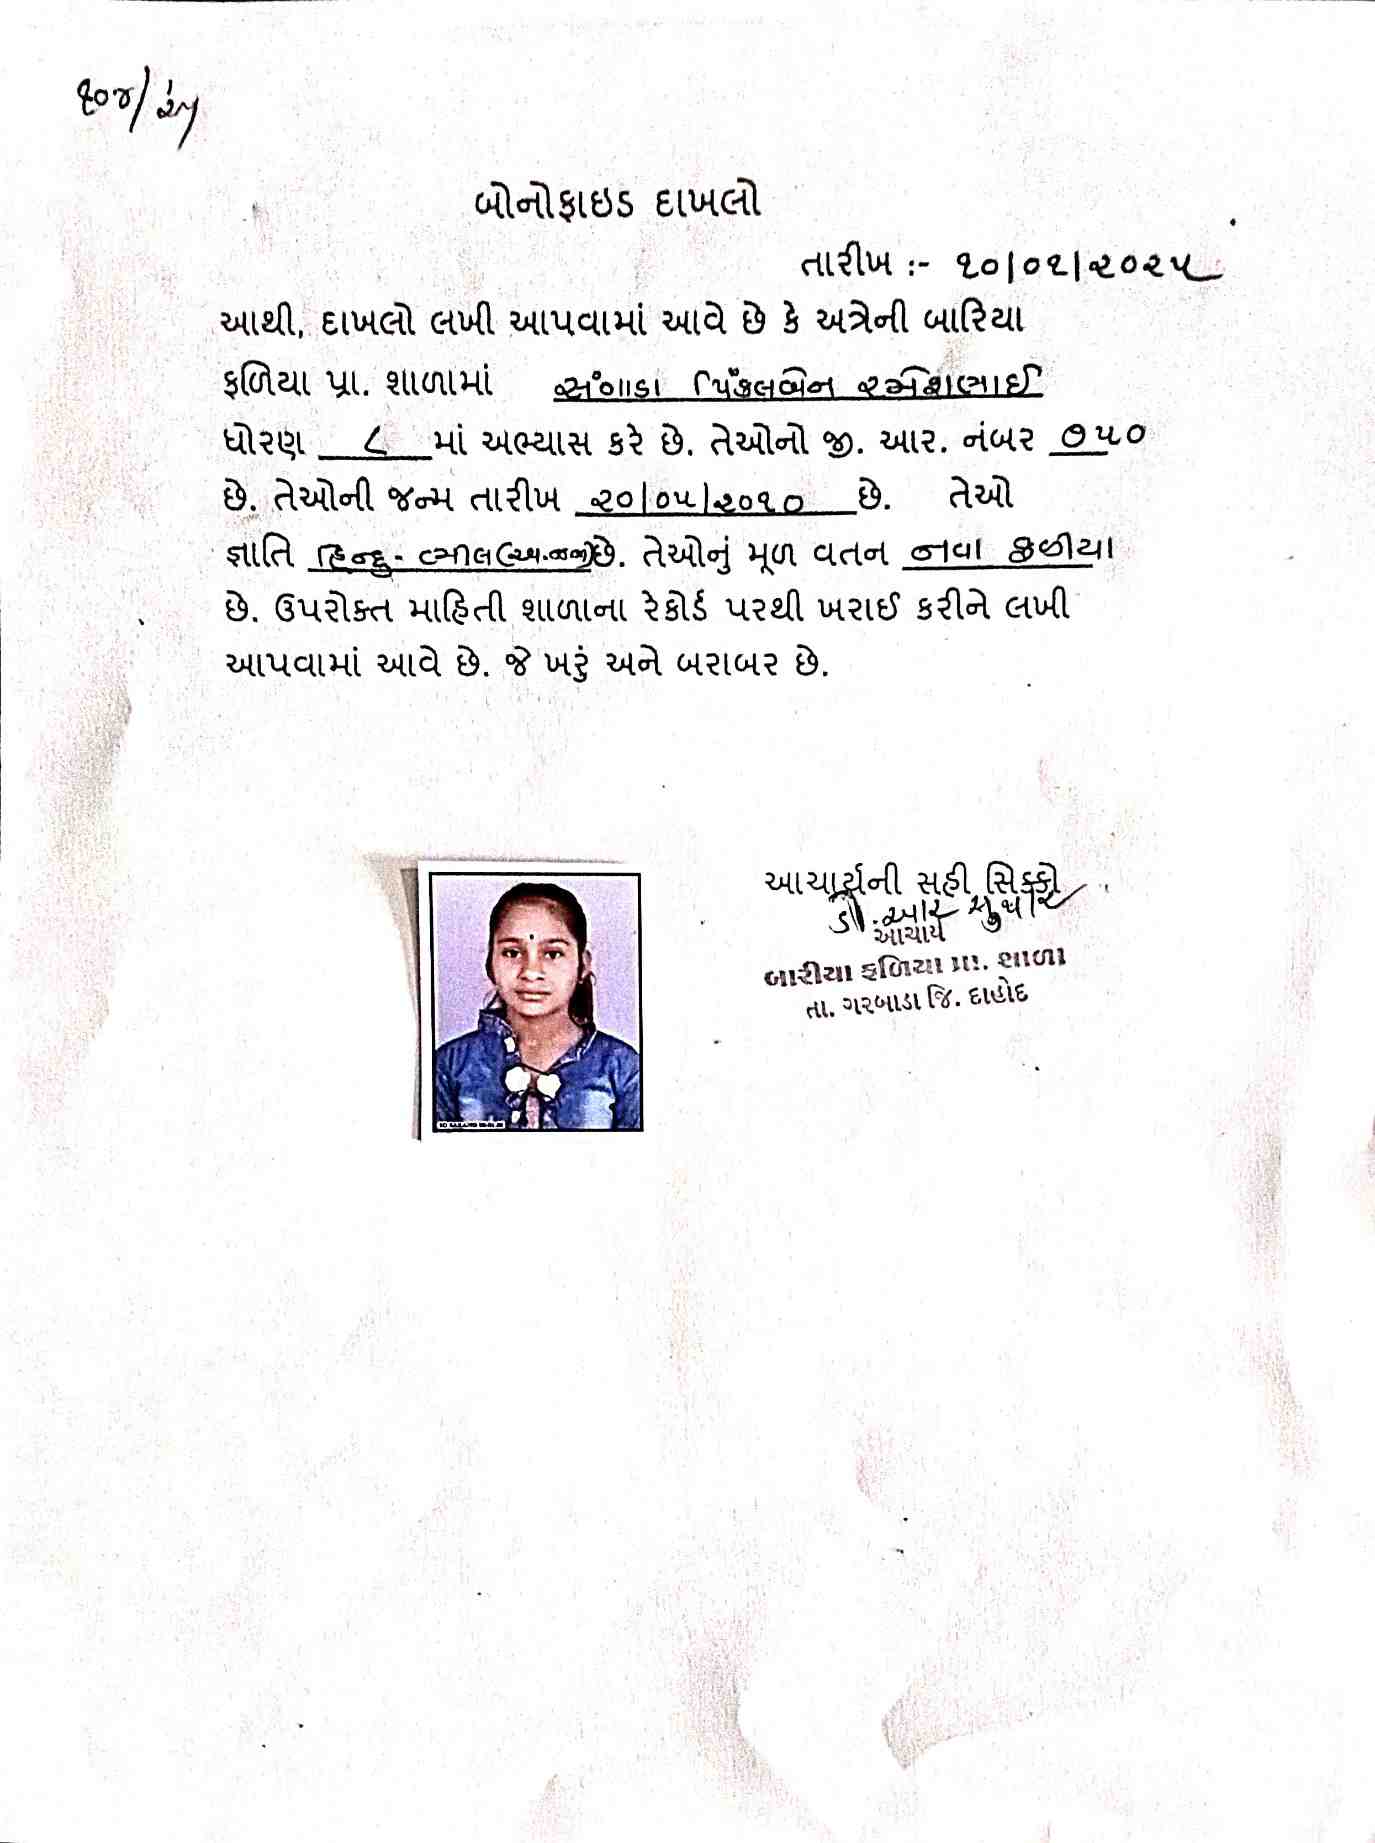 ૧૦૪/૨૫
બોનોફાઇડ દાખલો
તારીખ :- ૧૦/૦૧/૨૦૨૫
આથી, દાખલો લખી આપવામાં આવે છે કે અત્રેની બારિયા
ફળિયા પ્રા. શાળામાં સંગાડા પિંકલબેન રમેશભાઈ
ધોરણ ૮ માં અભ્યાસ કરે છે. તેઓનો જી. આર. નંબર ૭૫૦
છે. તેઓની જન્મ તારીખ ૨૦/૦૫/૨૦૧૦ છે. તેઓ
જ્ઞાતિ હિન્દુ - ભીલ(અ.જ.જા)છે. તેઓનું મૂળ વતન નવા ફળીયા
છે. ઉપરોક્ત માહિતી શાળાના રેકોર્ડ પરથી ખરાઈ કરીને લખી
આપવામાં આવે છે. જે ખરું અને બરાબર છે.
આચાર્યની સહી સિક્કો
ડી.આર સુથાર
આચાર્ય
બારીયા ફળિયા પ્રા. શાળા
તા. ગરબાડા જિ. દાહોદ